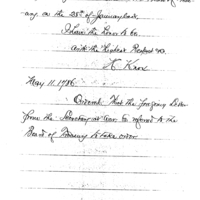 any on the 25th of January last
I have the honor to be
with the highest Respect &c.
H. Knox
May 11. 1786
Ordered That the foregoing Letter
from the Secretary at War be referred to the
Board of Treasury to take order